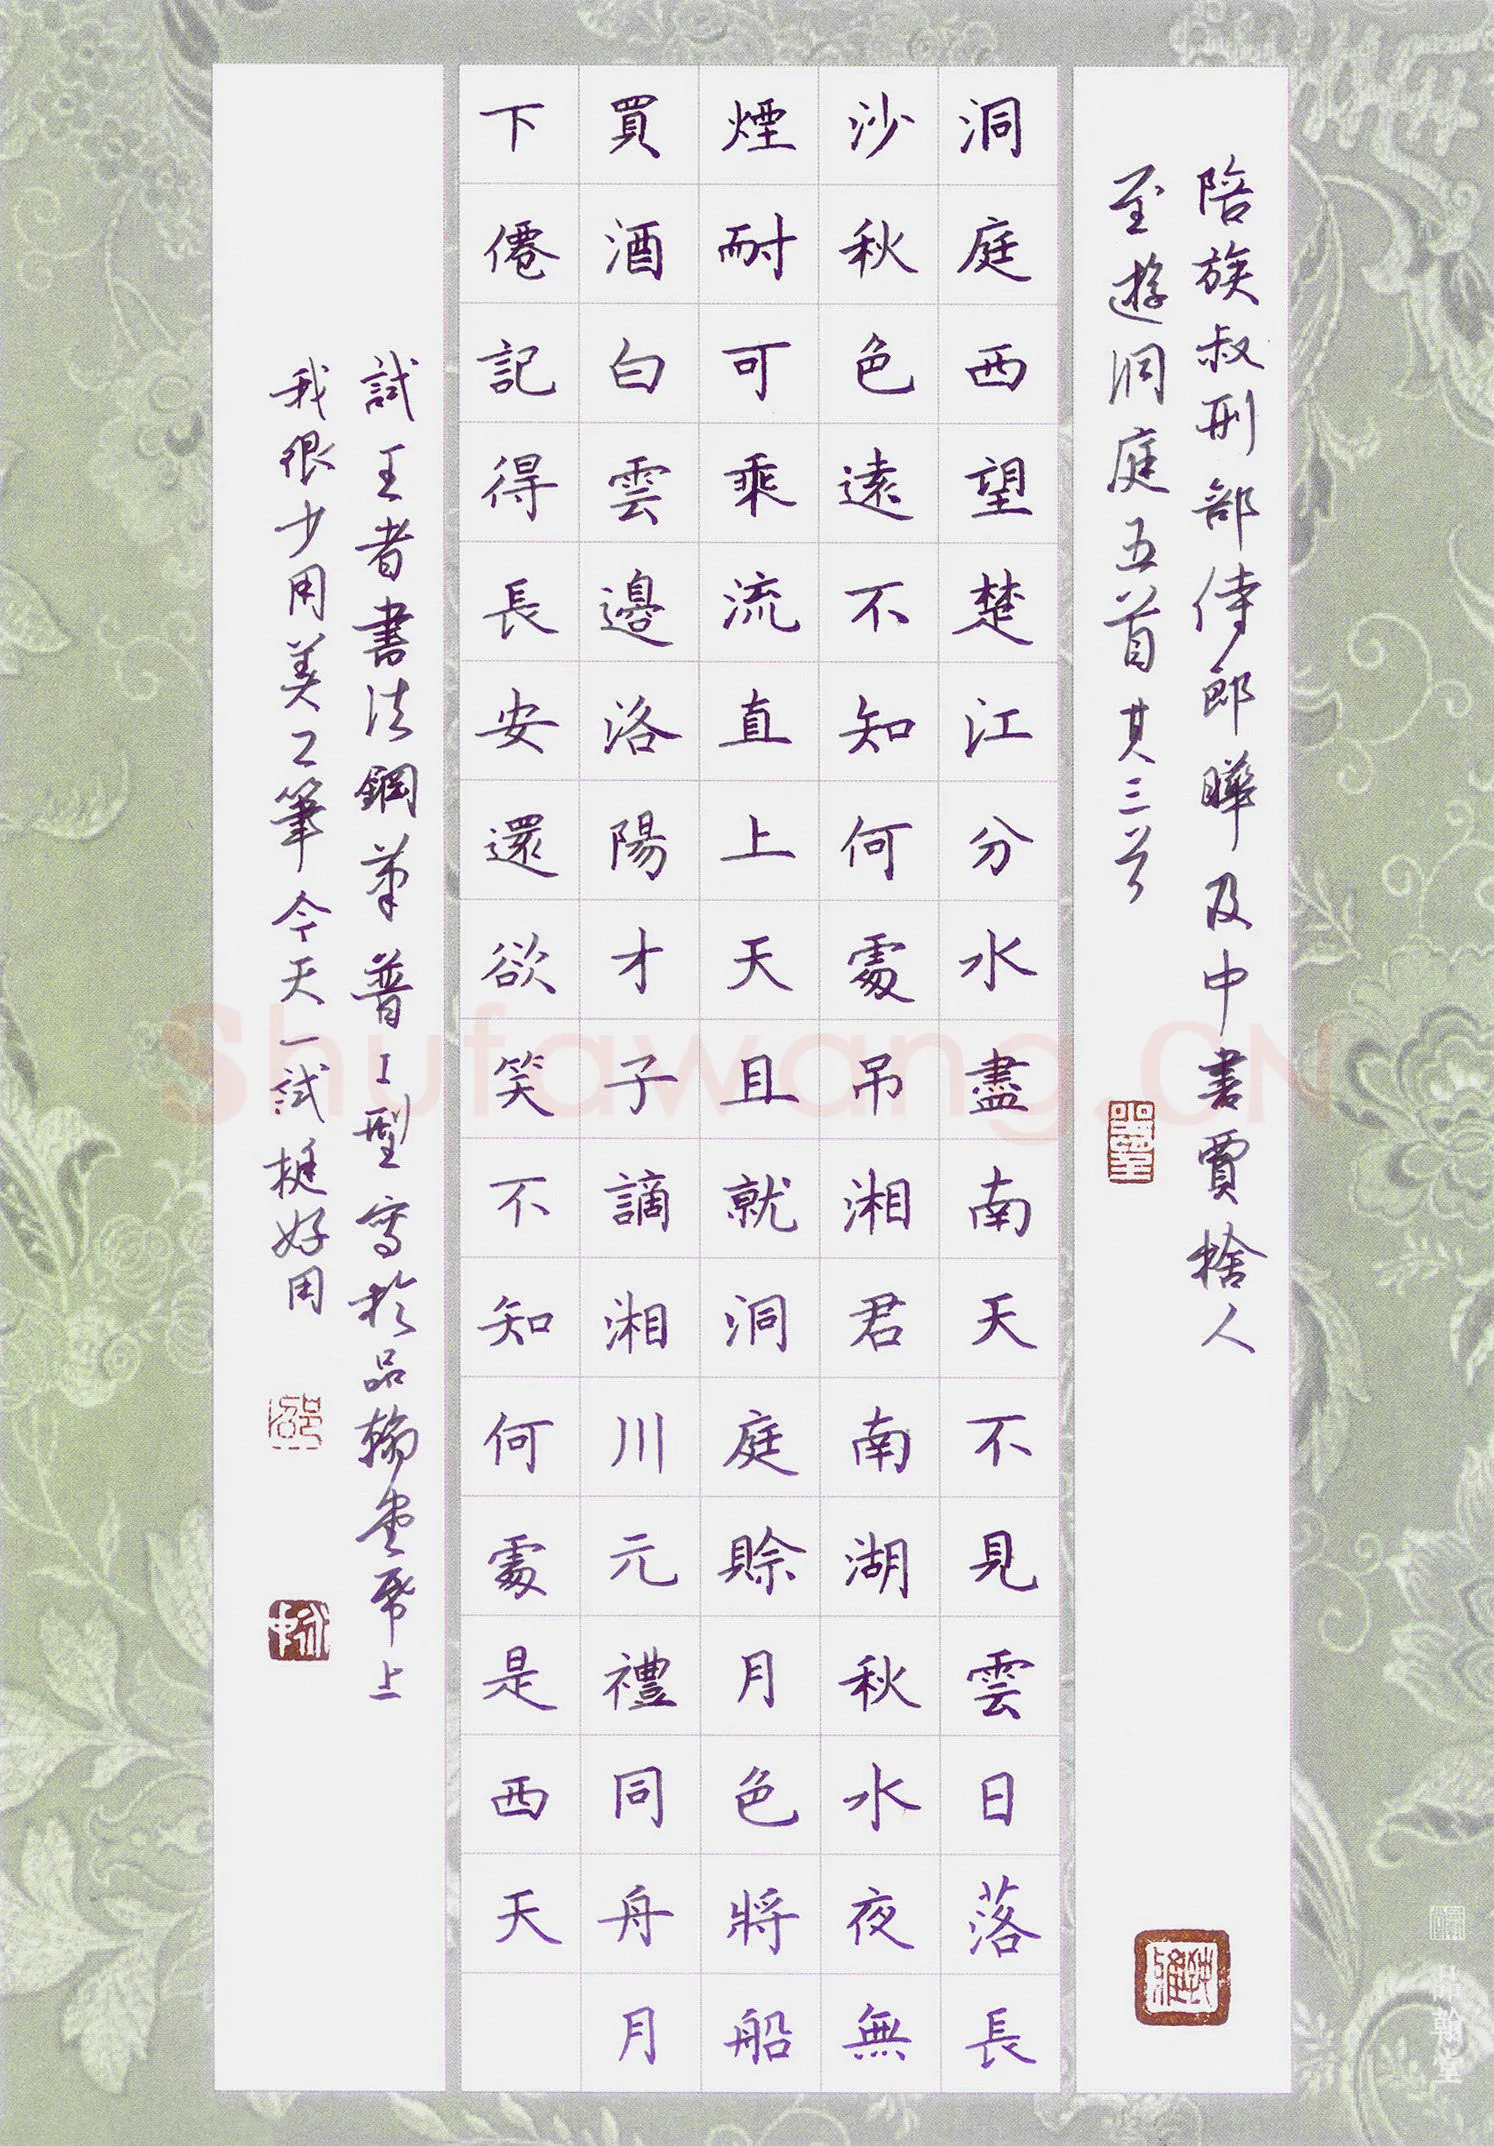 陪族叔刑部侍郎曄及中書賈捨人
至遊洞庭五首其三首
洞庭西望楚江分水盡南天不見雲日落長
沙秋色遠不知何處吊湘君南湖秋水夜無
煙耐可乘流直上天且就洞庭賒月色將船
買酒白雲邊洛陽才子謫湘川元禮同舟月
下僊記得長安還欲笑不知何處是西天
試王者書法鋼筆普工型寫於品翰堂帋上
我很少用美工筆今天一試挺好用
Shufawang.CN
品翰堂